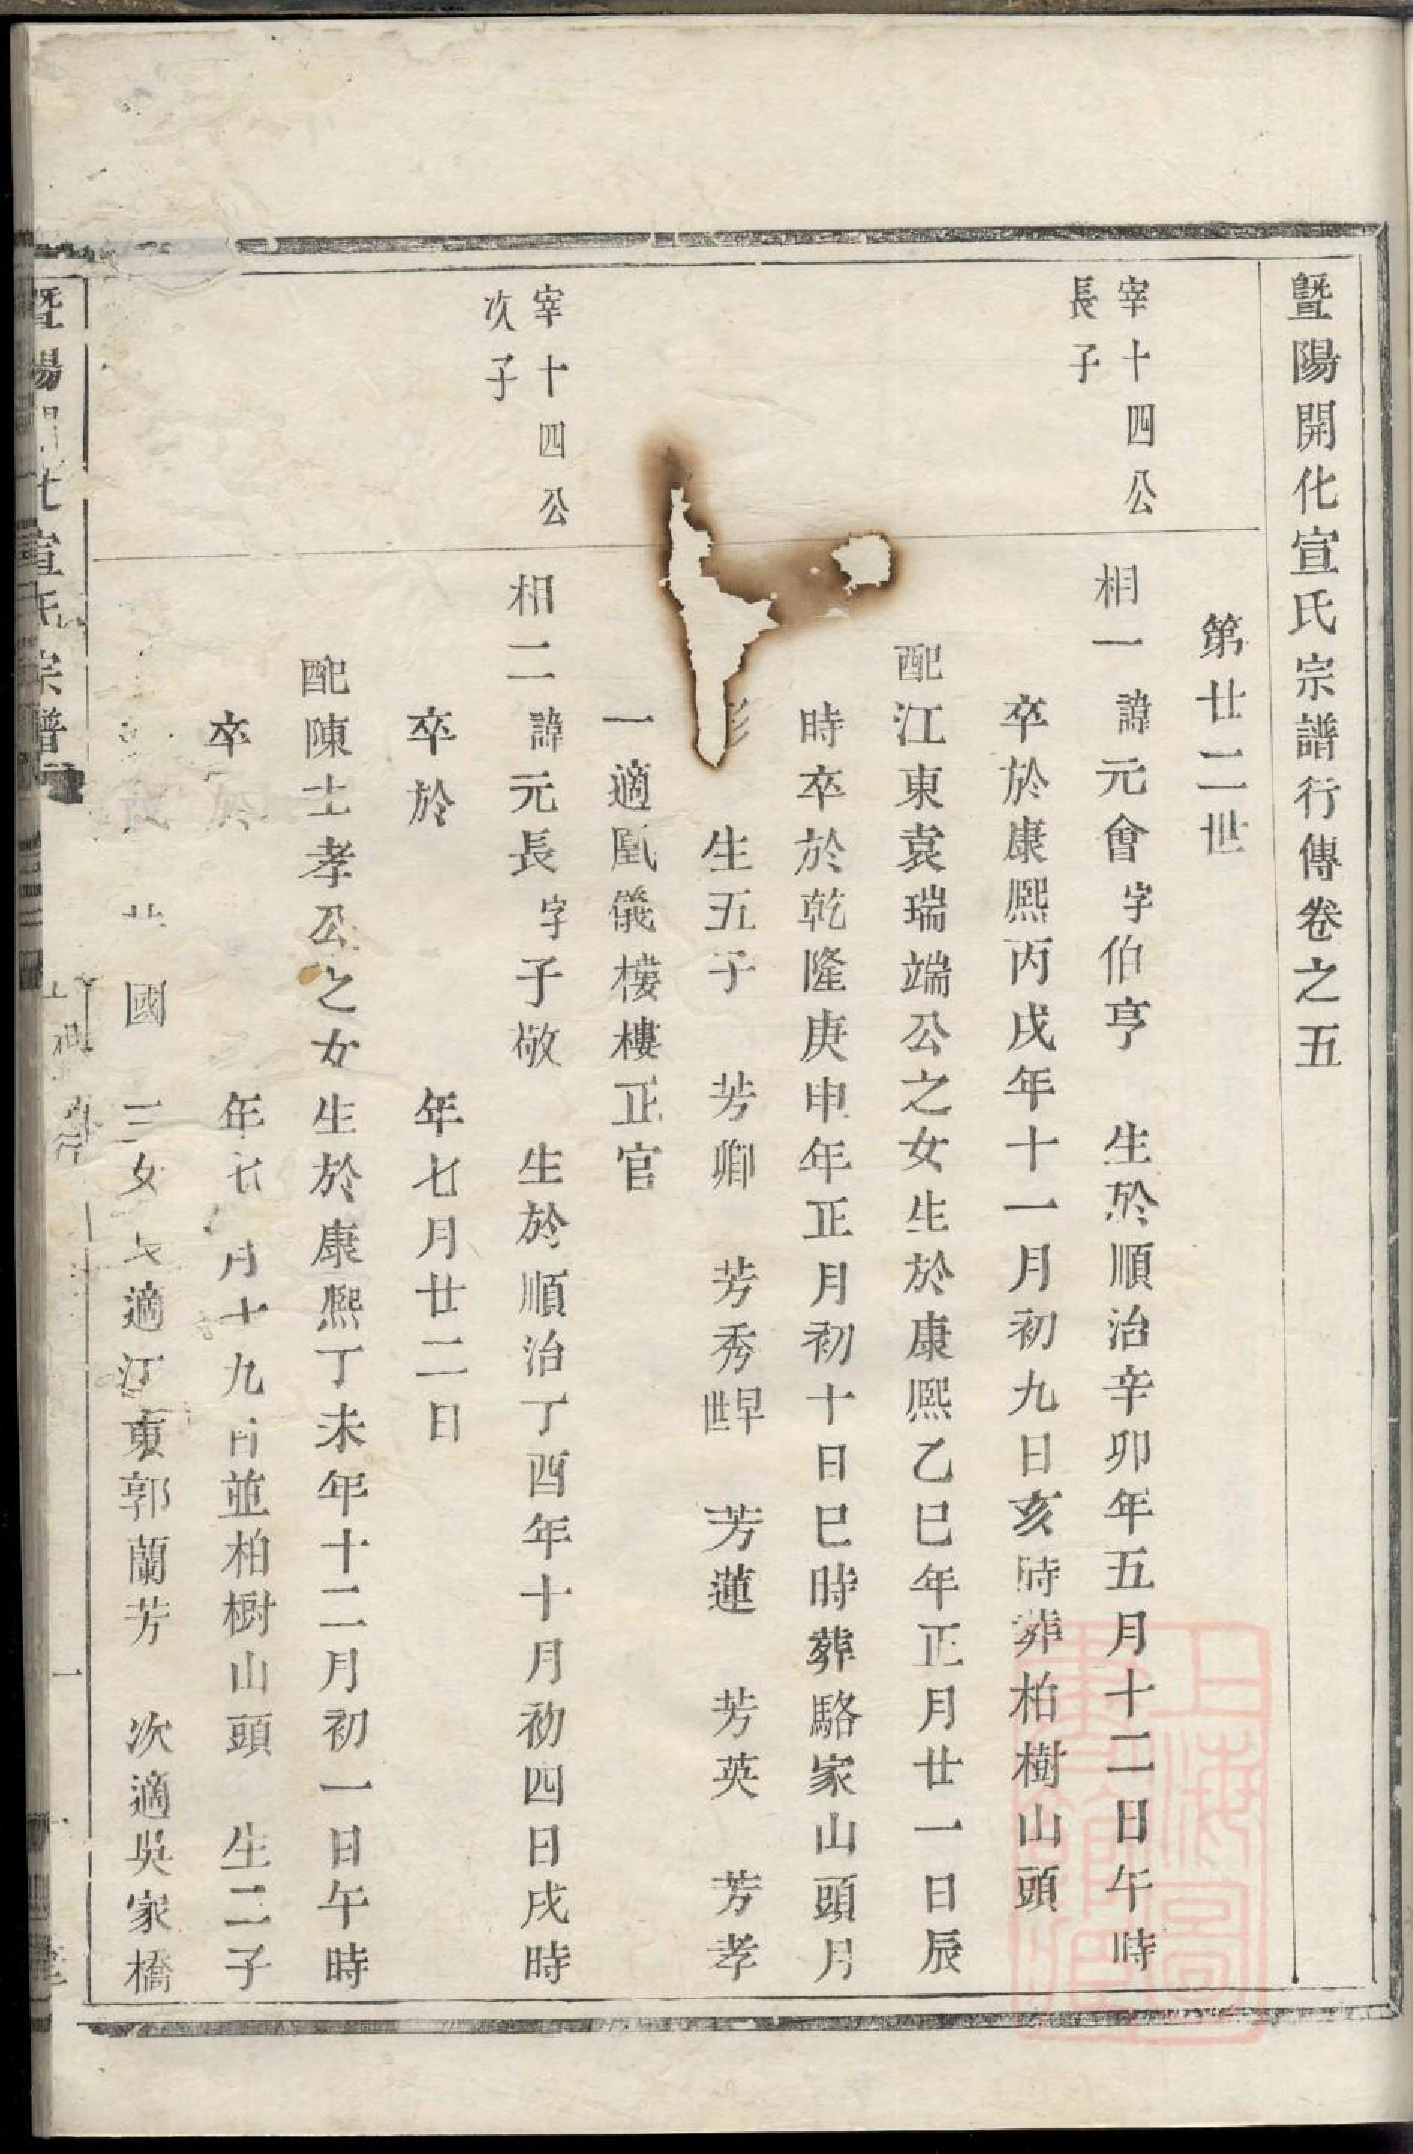 暨陽開化宣氏宗譜行傳卷之五
第廿二世
宰十四公
長子
相一諱元會字伯亨 生於順治辛卯年五月十二日午時
卒於康熙丙戌年十一月初九日亥時葬柏樹山頭
配江東袁瑞端公之女生於康熙乙巳年正月廿一日辰
時卒於乾隆庚申年正月初十日巳時葬駱家山頭月
生五子 芳卿 芳秀早世 芳蓮 芳英 芳孝
一適凰儀樓樓正官
宰十四公
次子
相二諱元長字子敬 生於順治丁酉年十月初四日戌時
卒於 年七月廿二日
配陳士孝公之女生於康熙丁未年十二月初一日午時
卒於 年七月十九日並柏樹山頭 生二子
國 三女長適江東郭蘭芳 次適吳家橋
暨陽開化宣氏宗譜
上海圖書館藏